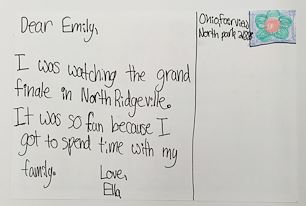 Dear Emily,
I was watching the grand
finale in North Ridgeville.
It was so fun because I
got to spend time with my
family.
Love,
Ella
Ohio, fairview
North park